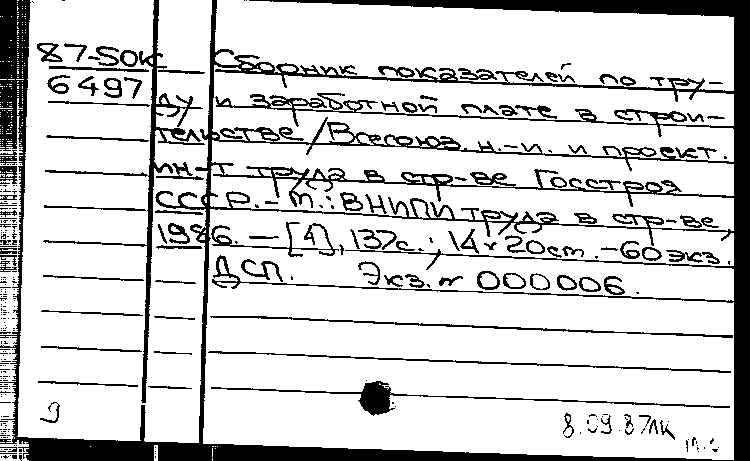 87-50к Сборник показателей по тру-
6497 ду и заработной плате в строи-
тельстве / Всесоюз. н.-и. и проект.
ин-т труда в стр-ве Госстроя
СССР. - М.: ВНИПИ труда в стр-ве,
1986. - [4], 137с.; 14х20см. - 60 экз.
ДСП. Экз. № 000006.
9
8.09.87ЛК